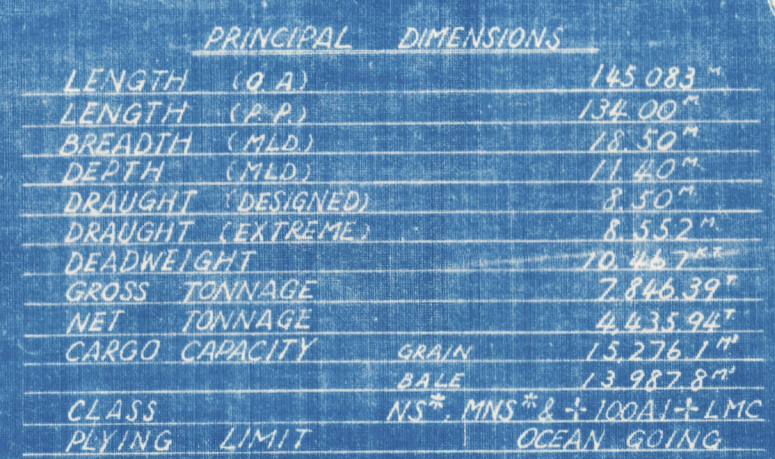 PRINCIPAL DIMENSIONS
LENGTH (O.A.) 145.083 M.
LENGTH (P.P.) 134.00 M.
BREADTH (MLD.) 18.50 M.
DEPTH (MLD.) 11.40 M.
DRAUGHT (DESIGNED) 8.50 M.
DRAUGHT (EXTREME) 8.552 M.
DEADWEIGHT 10.467 K.T.
GROSS TONNAGE 7,846.39 T
NET TONNAGE 4,435.94 T
CARGO CAPACITY GRAIN 15,276.1 M³
BALE 13,987.8 M³
CLASS NS*, MNS* & ✠ 100A1 ✠ LMC
PLYING LIMIT OCEAN GOING